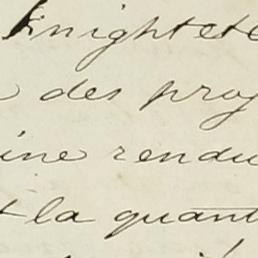 Knightet
des prog
ine rendu
la quant